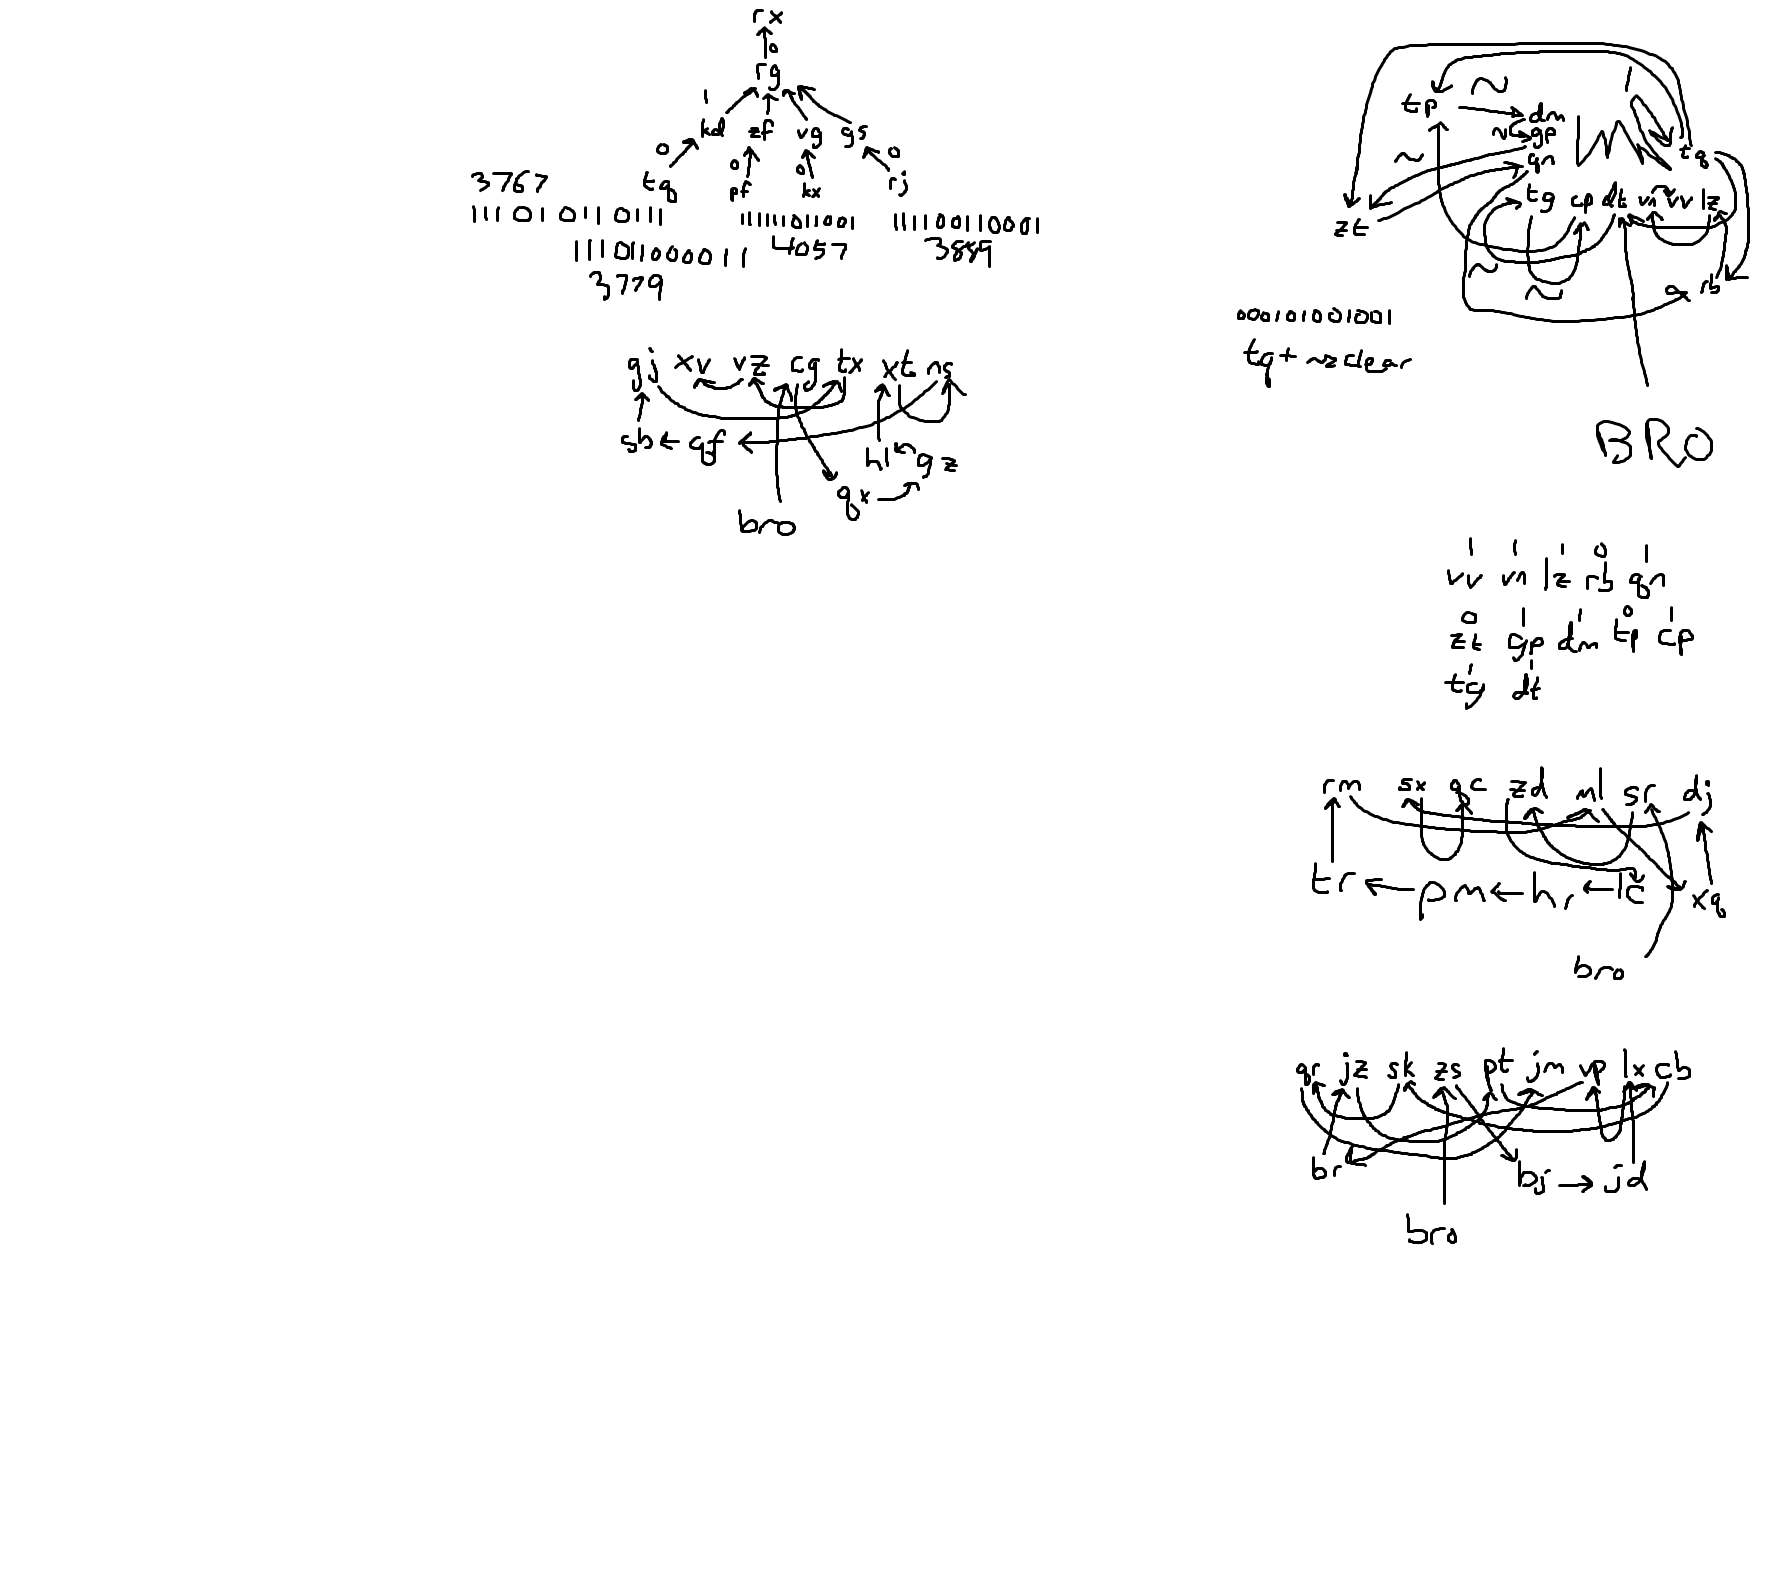 rx
0
rg
1
kd zf vg gs
0 0 0 0
tq pf kx rj
3767
111010110111
111011000011
3779
111111011001
4057
111100110001
3889
gj xv vz cg tx xt ns
sb qf hl gz
qx
bro
1
tp ~ dm
~ gp
~ qn
tq
zt
tg cp dt vn vv lz
~
~
rb
000101001001
tq + ~> clear
BRO
1 1 1 0 1
vv vn lz rb qn
0 1 1 0 1
zt gp dm tp cp
1 1
tg dt
rm sx qc zd ml sr dj
tr pm hr lc xq
bro
qr jz sk zs pt jm vp lx cb
br bj jd
bro